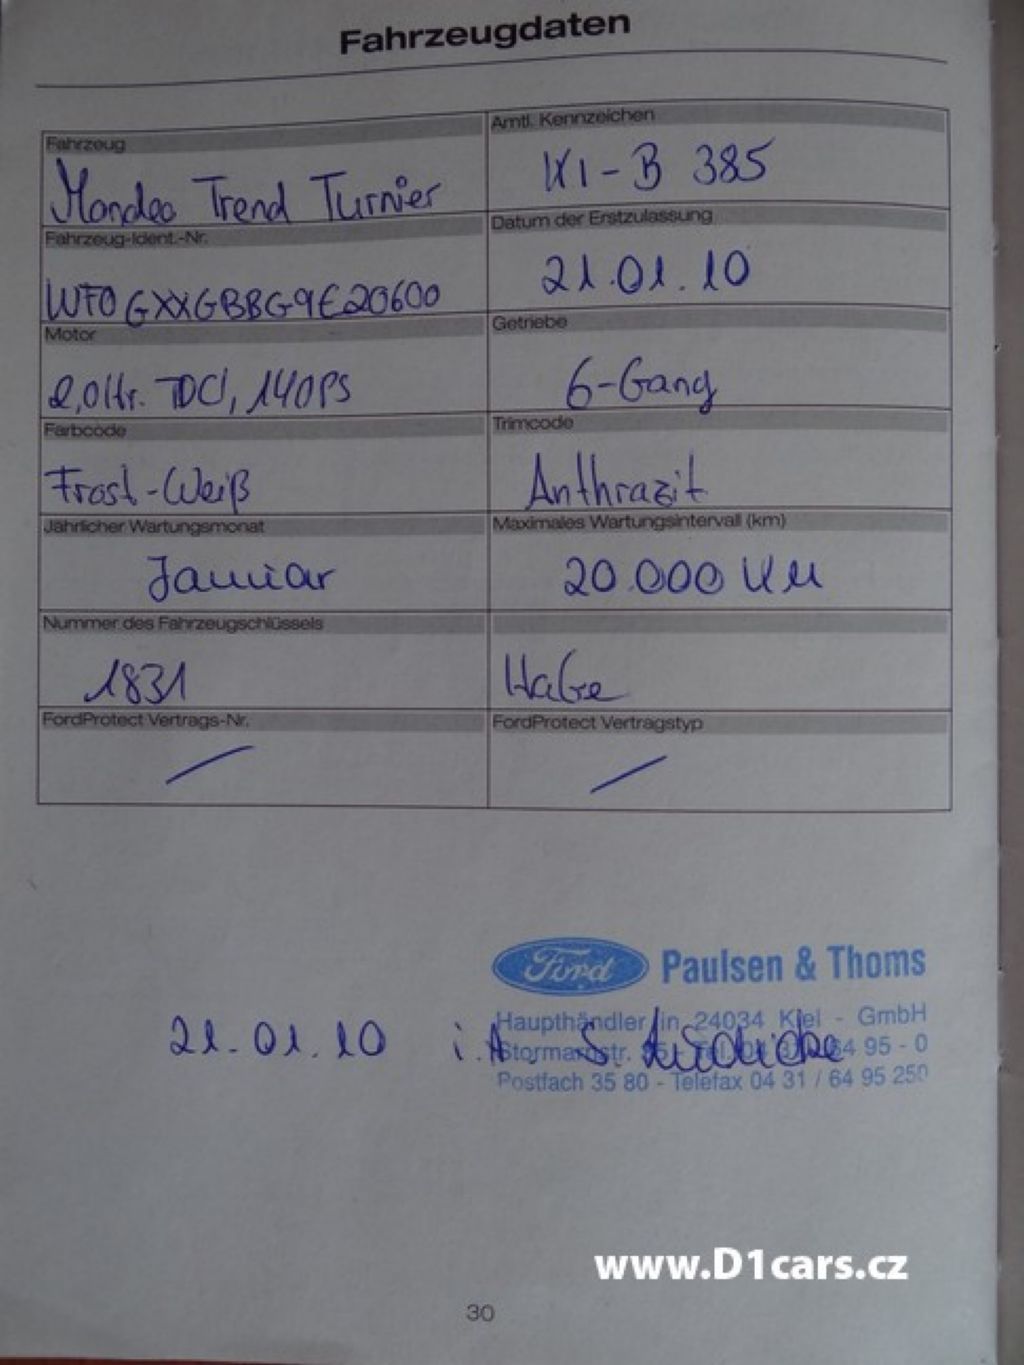 Fahrzeugdaten
Fahrzeug
Mondeo Trend Turnier
Amtl. Kennzeichen
KI-B 385
Fahrzeug-Ident.-Nr.
WF0GXXGBBG9E20600
Datum der Erstzulassung
21.01.10
Motor
2,0 ltr. TDCI, 140PS
Getriebe
6-Gang
Farbcode
Frost-Weiß
Trimcode
Anthrazit
Jährlicher Wartungsmonat
Januar
Maximales Wartungsintervall (km)
20.000 KM
Nummer des Fahrzeugschlüssels
1831
FordProtect Vertrags-Nr.
FordProtect Vertragstyp
Ford Paulsen & Thoms
Haupthändler in 24034 Kiel - GmbH
Stormarnstr. Tel. 64 95 - 0
Postfach 35 80 - Telefax 04 31 / 64 95 250
21.01.10 i.A. S.
www.D1cars.cz
30